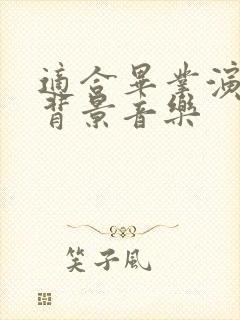 適合畢業演
背景音樂
笑子風